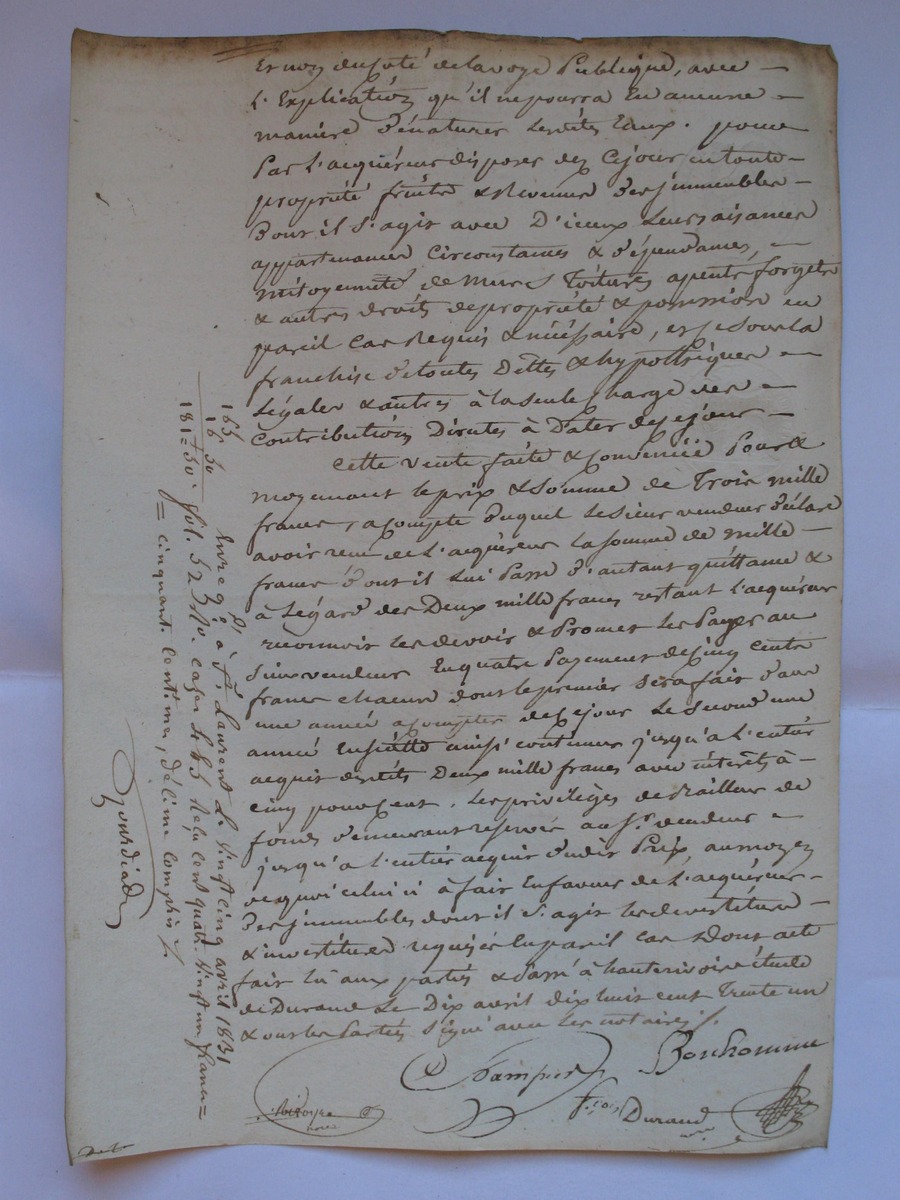 Et non du côté de la voye Publique, avec
L'Explication qu'il ne pourra En aucune
manière dénaturer lesdites Eaux. pour
Par L'acquéreur disposer dez Cejour en toute
propriété fruits & Revenus Des immeubles
Dont il s'agit avec D'iceux Leurs aisances
appartenances Circonstances & dépendances,
mitoyenneté de murs Toitures apents forgets
& autres droits de propriété & possession en
pareil Cas Requis & nécéssaire, et ce sous la
franchise de toutes Dettes & hypothèques
Légales & autres à la seule charge des
Contributions Directes à Dater de ce jour
Cette vente faite & Convenüe Pour &
moyenant le prix & Somme de Trois mille
francs, acompte duquel Le Sieur vendeur déclare
avoir reçu de L'acquéreur la Somme de mille
francs dont il Lui Passe d'autant quittance &
à Légard des Deux mille francs restant L'acquéreur
reconnoit les devoir & Promet les Payer au
Sieur vendeur En quatre Payement de Cinq Cents
francs chacun dont le premier Sera fait dans
une année acompter de Cejour Le Second une
année Ensuitte ainsi continuer jusqu'a L'entier
acquit desdits Deux mille francs avec intérêts à
Cinq pour Cent. Les privilèges de Bailleur de
fonds demeurant reservés au Sr. vendeur
jusqu'a L'entier acquit dudit Prix, aumoyen
de quoi celui ci à fait En faveur de L'acquéreur
Des immeubles dont il s'agit les devestitures
& investitures requises En pareil cas Dont acte
fait Lu aux parties & Passé à hauterivoire étude
de Durand Le Dix avril dix huit cent Trente un
& ont les Parties Signé avec Les notaires
Bonhomme
fçois Durand
nore
165
16 50
181=50
Enregé. à St. Laurent Le vingt cinq avril 1831
fol. 52 Ro. Cases Reçu cent quatre vingt un francs
= cinquante centimes, décime compris